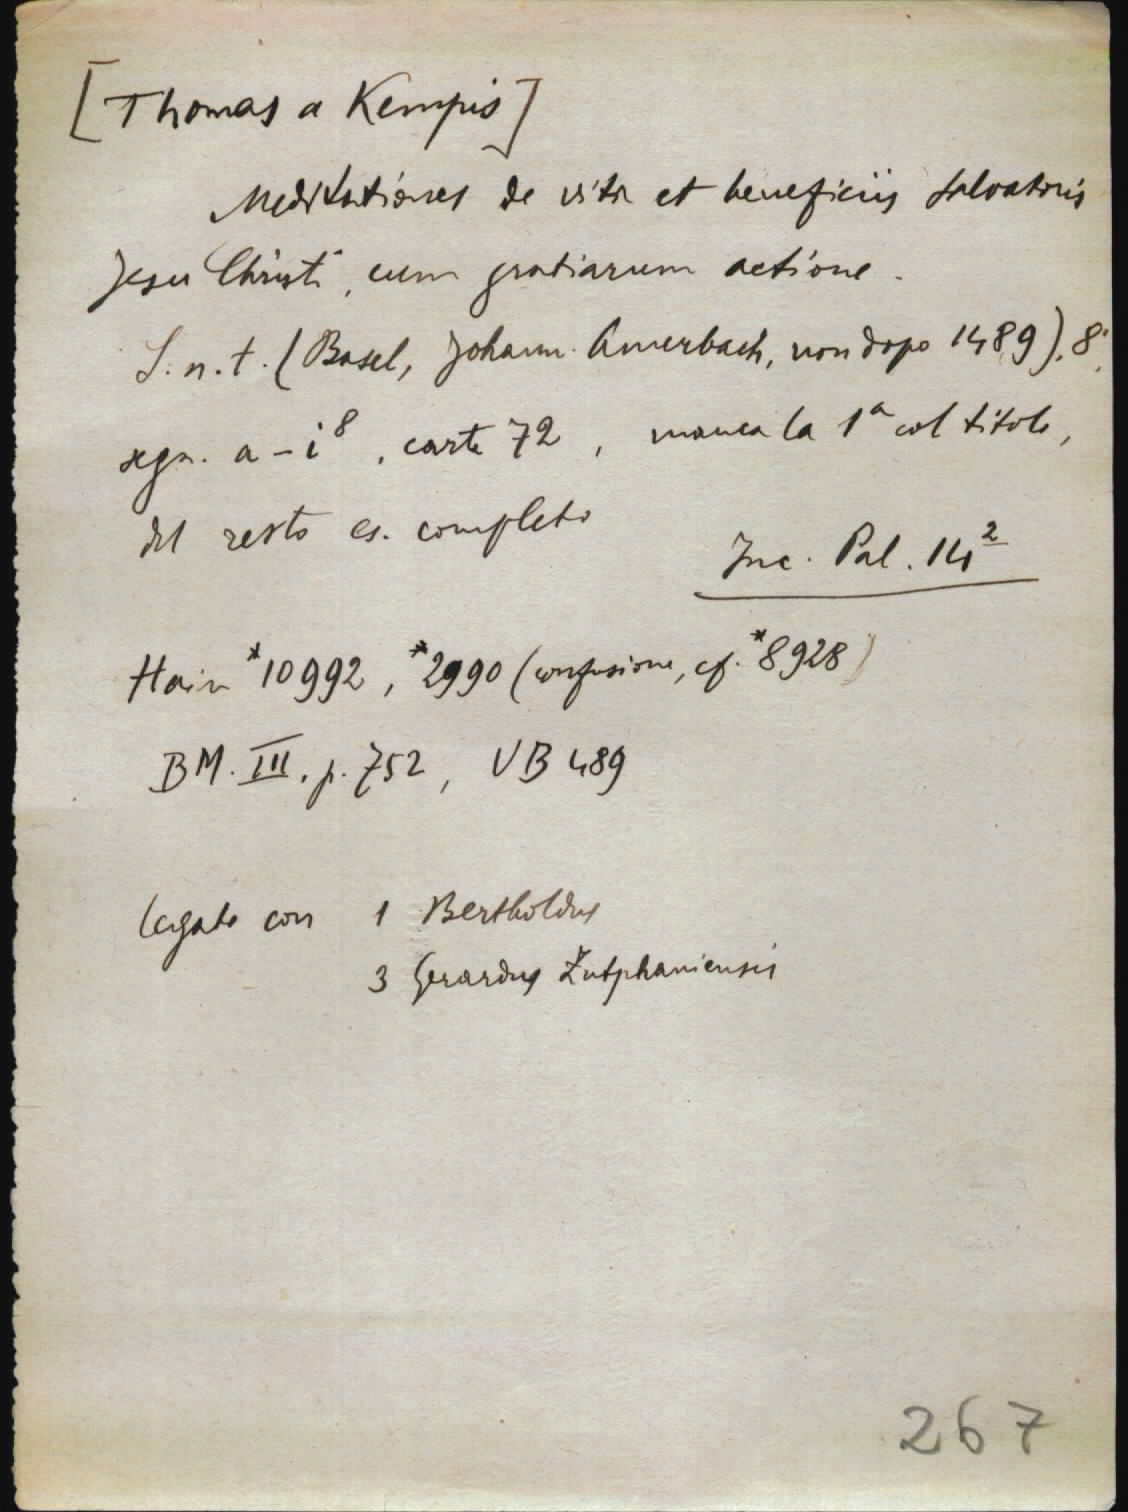 [Thomas a Kempis]
Meditationes de vita et beneficiis Salvatoris
Jesu Christi, cum gratiarum actione.
S. n. t. (Basel, Johann. Amerbach, non dopo 1489). 8°,
segn. a-i⁸, carte 72, manca la 1ª col titolo,
del resto es. completo
Inc. Pal. 14²
Hain *10992, *2990 (confusione, cf. *8928)
BM. III. p. 752, VB 489
legato con 1 Bertholdus
3 Gerardus Zutphaniensis
267